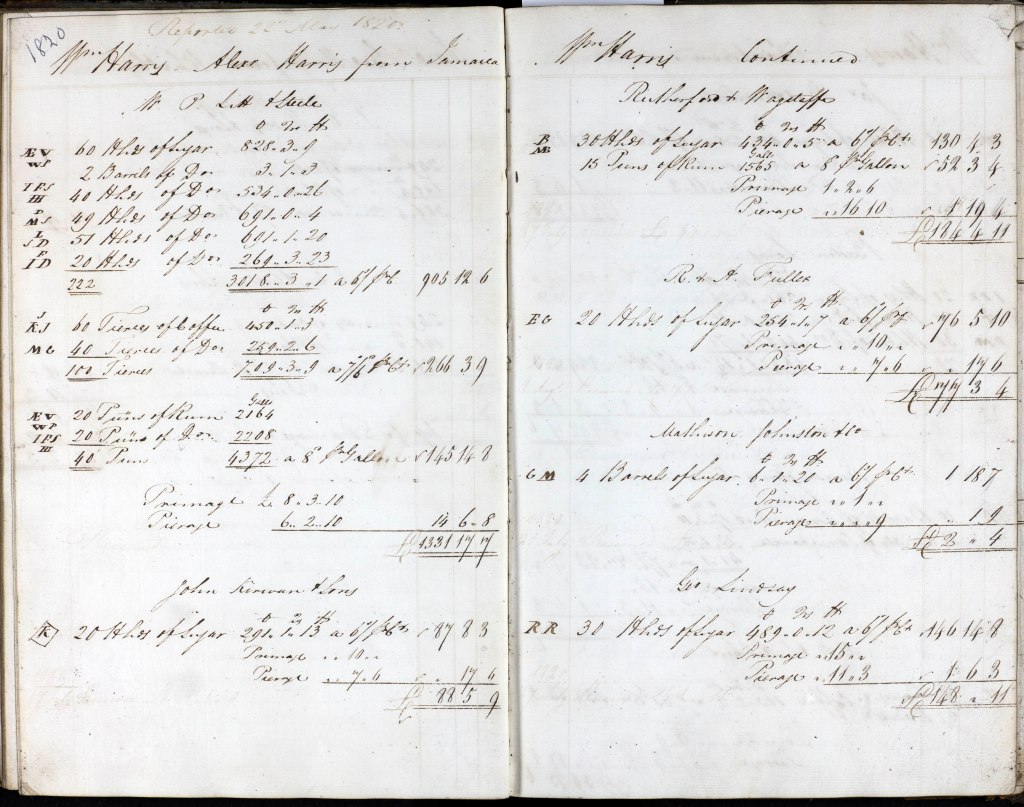 1820
Reported 22nd May 1820
Wm Harris Alexr Harris from Jamaica
W P. Litt & Steele
C Qrs lb
ÆV WS 60 Hhds of Sugar 828..3..9
2 Barrels of Do 3..1..3
IPS H 40 Hhds of Do 534..0..26
P MS 49 Hhds of Do 691..0..4
L SD 51 Hhds of Do 691..1..20
P ID 20 Hhds of Do 269..3..23
222 3018..3..1 a 6/ pr C 905 12 6
C Qrs lb
J KS 60 Tierces of Coffee 450..1..3
MG 40 Tierces of Do 259..2..6
100 Tierces 709..3..9 a 7/6 pr Ct 266 3 9
Gall
ÆV WP 20 Puns of Rum 2164
IPS H 20 Puns of Do 2208
40 Puns 4372 a 8d pr Gallon 145 14 8
Primage £ 8..3..10
Pierage 6..2..10 14 6..8
£1331 17 7
John Kirwan & Sons
C Qrs lb
K 20 Hhds of Sugar 291..1..13 a 6/ pr Ct 87 8 3
Primage ..10..
Pierage ..7..6 17 6
£ 88 5 9
Wm Harris Continued
Rutherford & Wagstaffe
C Qrs lb
P Æ 30 Hhds of Sugar 434..0..5 a 6/ pr Ct 130 4 3
Gall
15 Puns of Rum 1565 a 8 pr Gallon 52 3 4
Primage 1..2..6
Pierage ..16 10 1 19 4
£184 4 11
R. & A. Fuller
C Qrs lb
EG 20 Hhds of Sugar 254..1..7 a 6/ pr C 76 5 10
Primage ..10..
Pierage ..7..6 ..17 6
£77 3 4
Mathison Johnston & Co
C Qrs lb
GM 4 Barrels of Sugar 6..1..20 a 6/ pr Ct 1 18 7
Primage ..1..
Pierage ....9 ..1..9
£2 .. 4
Geo Lindsay
C Qrs lb
RR 30 Hhds of Sugar 489..0..12 a 6/ pr Ct 146 14 8
Primage ..15..
Pierage ..11..3 1 6 3
£148 .. 11